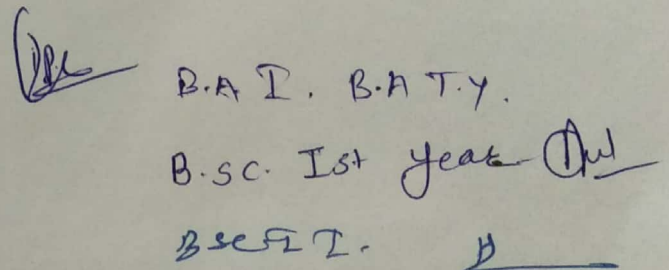 B.A I. B.A T.Y.
B.SC. Ist year
B SC II.